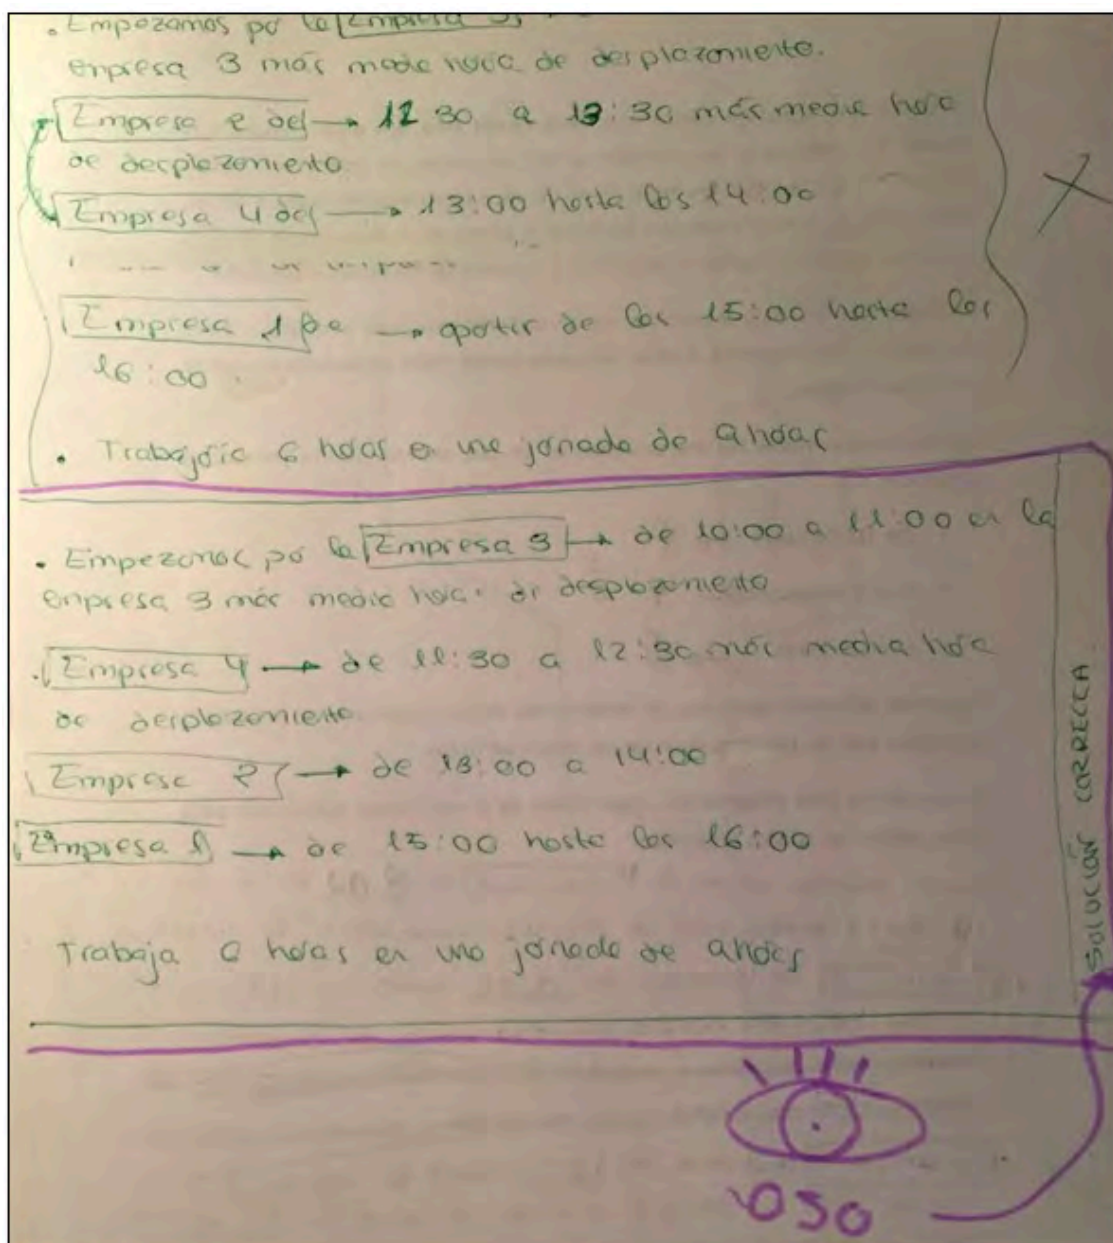 . Empezamos por la Empresa 3
empresa 3 más media hora de desplazamiento.
Empresa 2 de → 12 30 a 13:30 más media hora
de desplazamiento.
Empresa 4 de → 13:00 hasta las 14:00
Empresa 1 → apartir de las 15:00 hasta las
16:00.
. Trabajaría 6 horas en una jornada de 9 horas
. Empezamos por la Empresa 3 → de 10:00 a 11:00 en la
empresa 3 más media hora de desplazamiento
. Empresa 4 → de 11:30 a 12:30 más media hora
de desplazamiento
Empresa 2 → de 13:00 a 14:00
Empresa 1 → de 15:00 hasta las 16:00
Trabaja 6 horas en una jornada de 9 horas
SOLUCIÓN CORRECCA
OSO